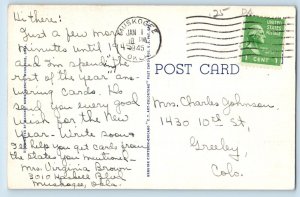 Hi there:
Just a few more
minutes until 1945
and I'm spending the
rest of the year "ans-
wering cards. Do
send you every good
wish for the New
Year - Write soon &
I'll help you get cards from
the "states you mentioned.
Mrs. Virginia Brown
3010 Haskell Blvd
Muskogee, Okla.
MUSKOGEE
JAN 1
PM
1945
OKLA.
25
POST CARD
1 CENT 1
Mrs. Charles Johnson
1430 10th St,
Greeley,
Colo.